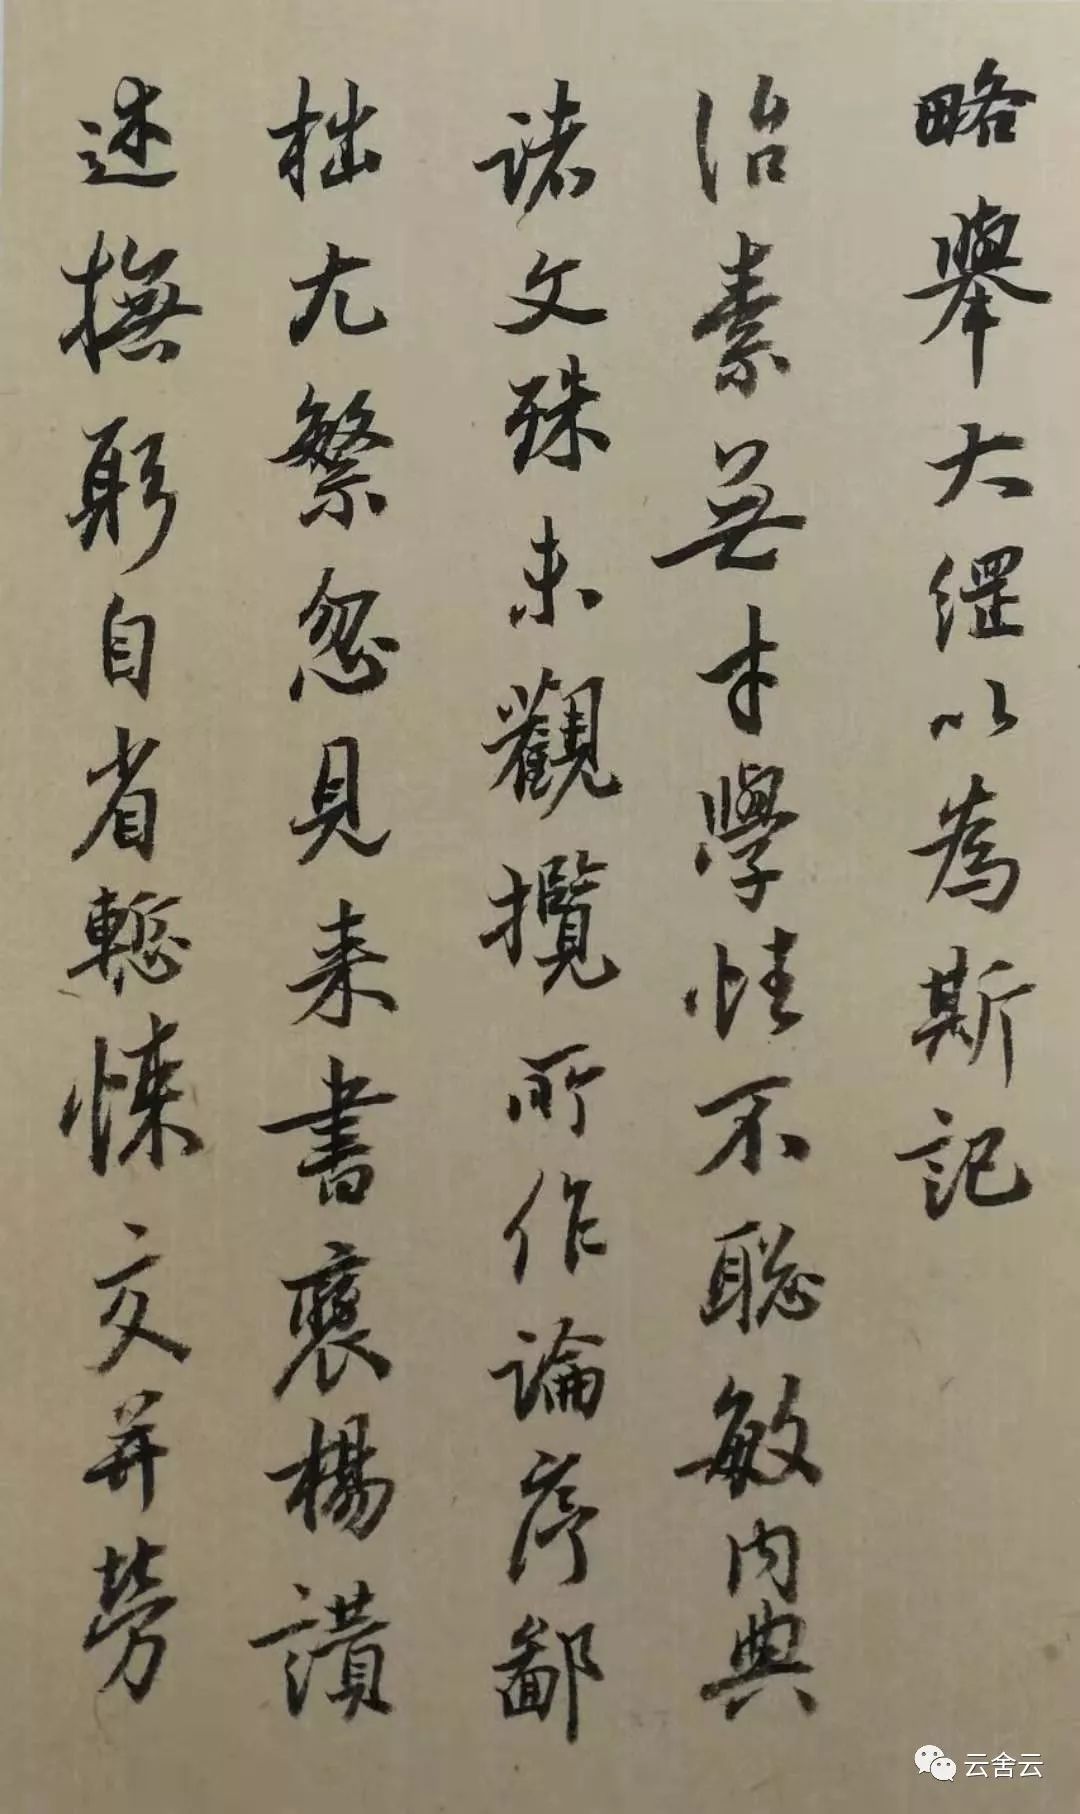 略舉大綱以為斯記
治素無才學性不聡敏内典
諸文殊未觀攬所作論序鄙
拙尤繁忽見来書褒楊讃
述撫躬自省慙悚交并勞
云舍云